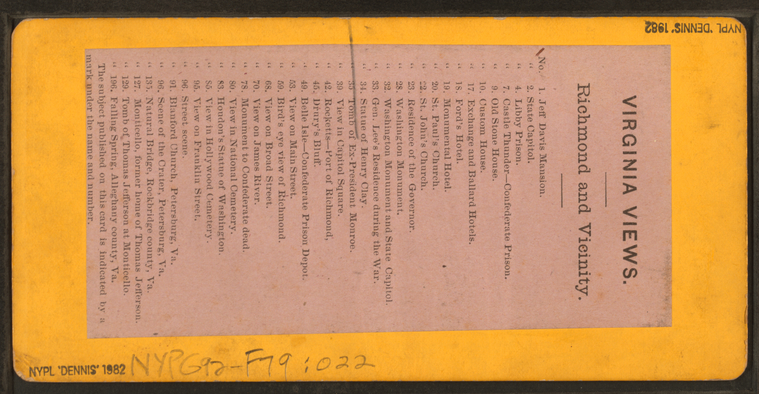 VIRGINIA VIEWS.
Richmond and Vicinity.
No. 1. Jeff Davis Mansion.
" 2. State Capitol.
" 4. Libby Prison.
" 7. Castle Thunder—Confederate Prison.
" 9. Old Stone House.
" 10. Custom House.
" 17. Exchange and Ballard Hotels.
" 18. Ford's Hotel.
" 19. Monumental Hotel.
" 20. St. Paul's Church.
" 22. St. John's Church.
" 23. Residence of the Governor.
" 28. Washington Monument.
" 32. Washington Monument and State Capitol.
" 33. Gen. Lee's Residence during the War.
" 34. Statue of Henry Clay.
" 35. Tomb of Ex-President Monroe.
" 39. View in Capitol Square.
" 42. Rocketts—Port of Richmond.
" 45. Drury's Bluff.
" 49. Belle Isle—Confederate Prison Depot.
" 53. View on Main Street.
" 59. Bird's eye view of Richmond.
" 68. View on Broad Street.
" 70. View on James River.
" 78. Monument to Confederate dead.
" 80. View in National Cemetery.
" 83. Houdon's Statue of Washington.
" 85. View in Hollywood Cemetery.
" 95. View on Franklin Street.
" 96. Street scene.
" 91. Blanford Church, Petersburg, Va.
" 96. Scene of the Crater, Petersburg, Va.
" 135. Natural Bridge, Rockbridge county, Va.
" 127. Monticello, former home of Thomas Jefferson.
" 129. Tomb of Thomas Jefferson at Monticello.
" 196. Falling Spring, Alleghany county, Va.
The subject published on this card is indicated by a
mark under the name and number.
NYPL "DENNIS" 1982
NYPG92-F79:022
NYPL "DENNIS" 1982